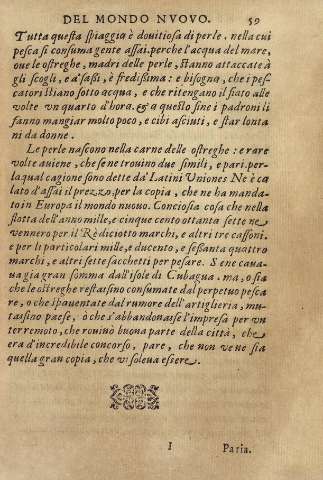 DEL MONDO NVOVO. 59
Tutta questa spiaggia è douitiosa di perle. nella cui
pesca si consuma gente assai. perche l'acqua del mare,
oue le ostreghe, madri delle perle, stanno attaccate à
gli scogli, e à sassi, è fredissima: e bisogna, che i pes-
catori stiano sotto acqua, e che ritengano il fiato alle
volte vn quarto d'hora. & a questo fine i padroni li
fanno mangiar molto poco, e cibi asciuti, e star lonta
ni da donne.
Le perle nascono nella carne delle ostreghe: e rare
volte auiene, che se ne trouino due simili, e pari. per-
laqual cagione sono dette da' Latini Vniones: Ne è ca
lato d'assai il prezzo. per la copia, che ne ha manda-
to in Europa il mondo nuouo. Conciosia cosa che nella
flotta dell'anno mille, e cinque cento ottanta sette ne
vennero per il Rè diciotto marchi, e altri tre cassoni,
e per li particolari mille, e ducento, e sessanta quattro
marchi, e altri sette sacchetti per pesare. S ene caua-
ua gia gran somma dall'isole di Cubagua. ma, o sia
che le ostreghe restassino consumate dal perpetuo pesca
re, o che spauentate dal rumore dell'artiglieria, mu-
tassino paese, ò che s'abbandonasse l'impresa per vn
terremoto, che rouinò buona parte della città, che
era d'incredibile concorso, pare, che non ve ne sia
quella gran copia, che vi soleua essere.
I Paria.